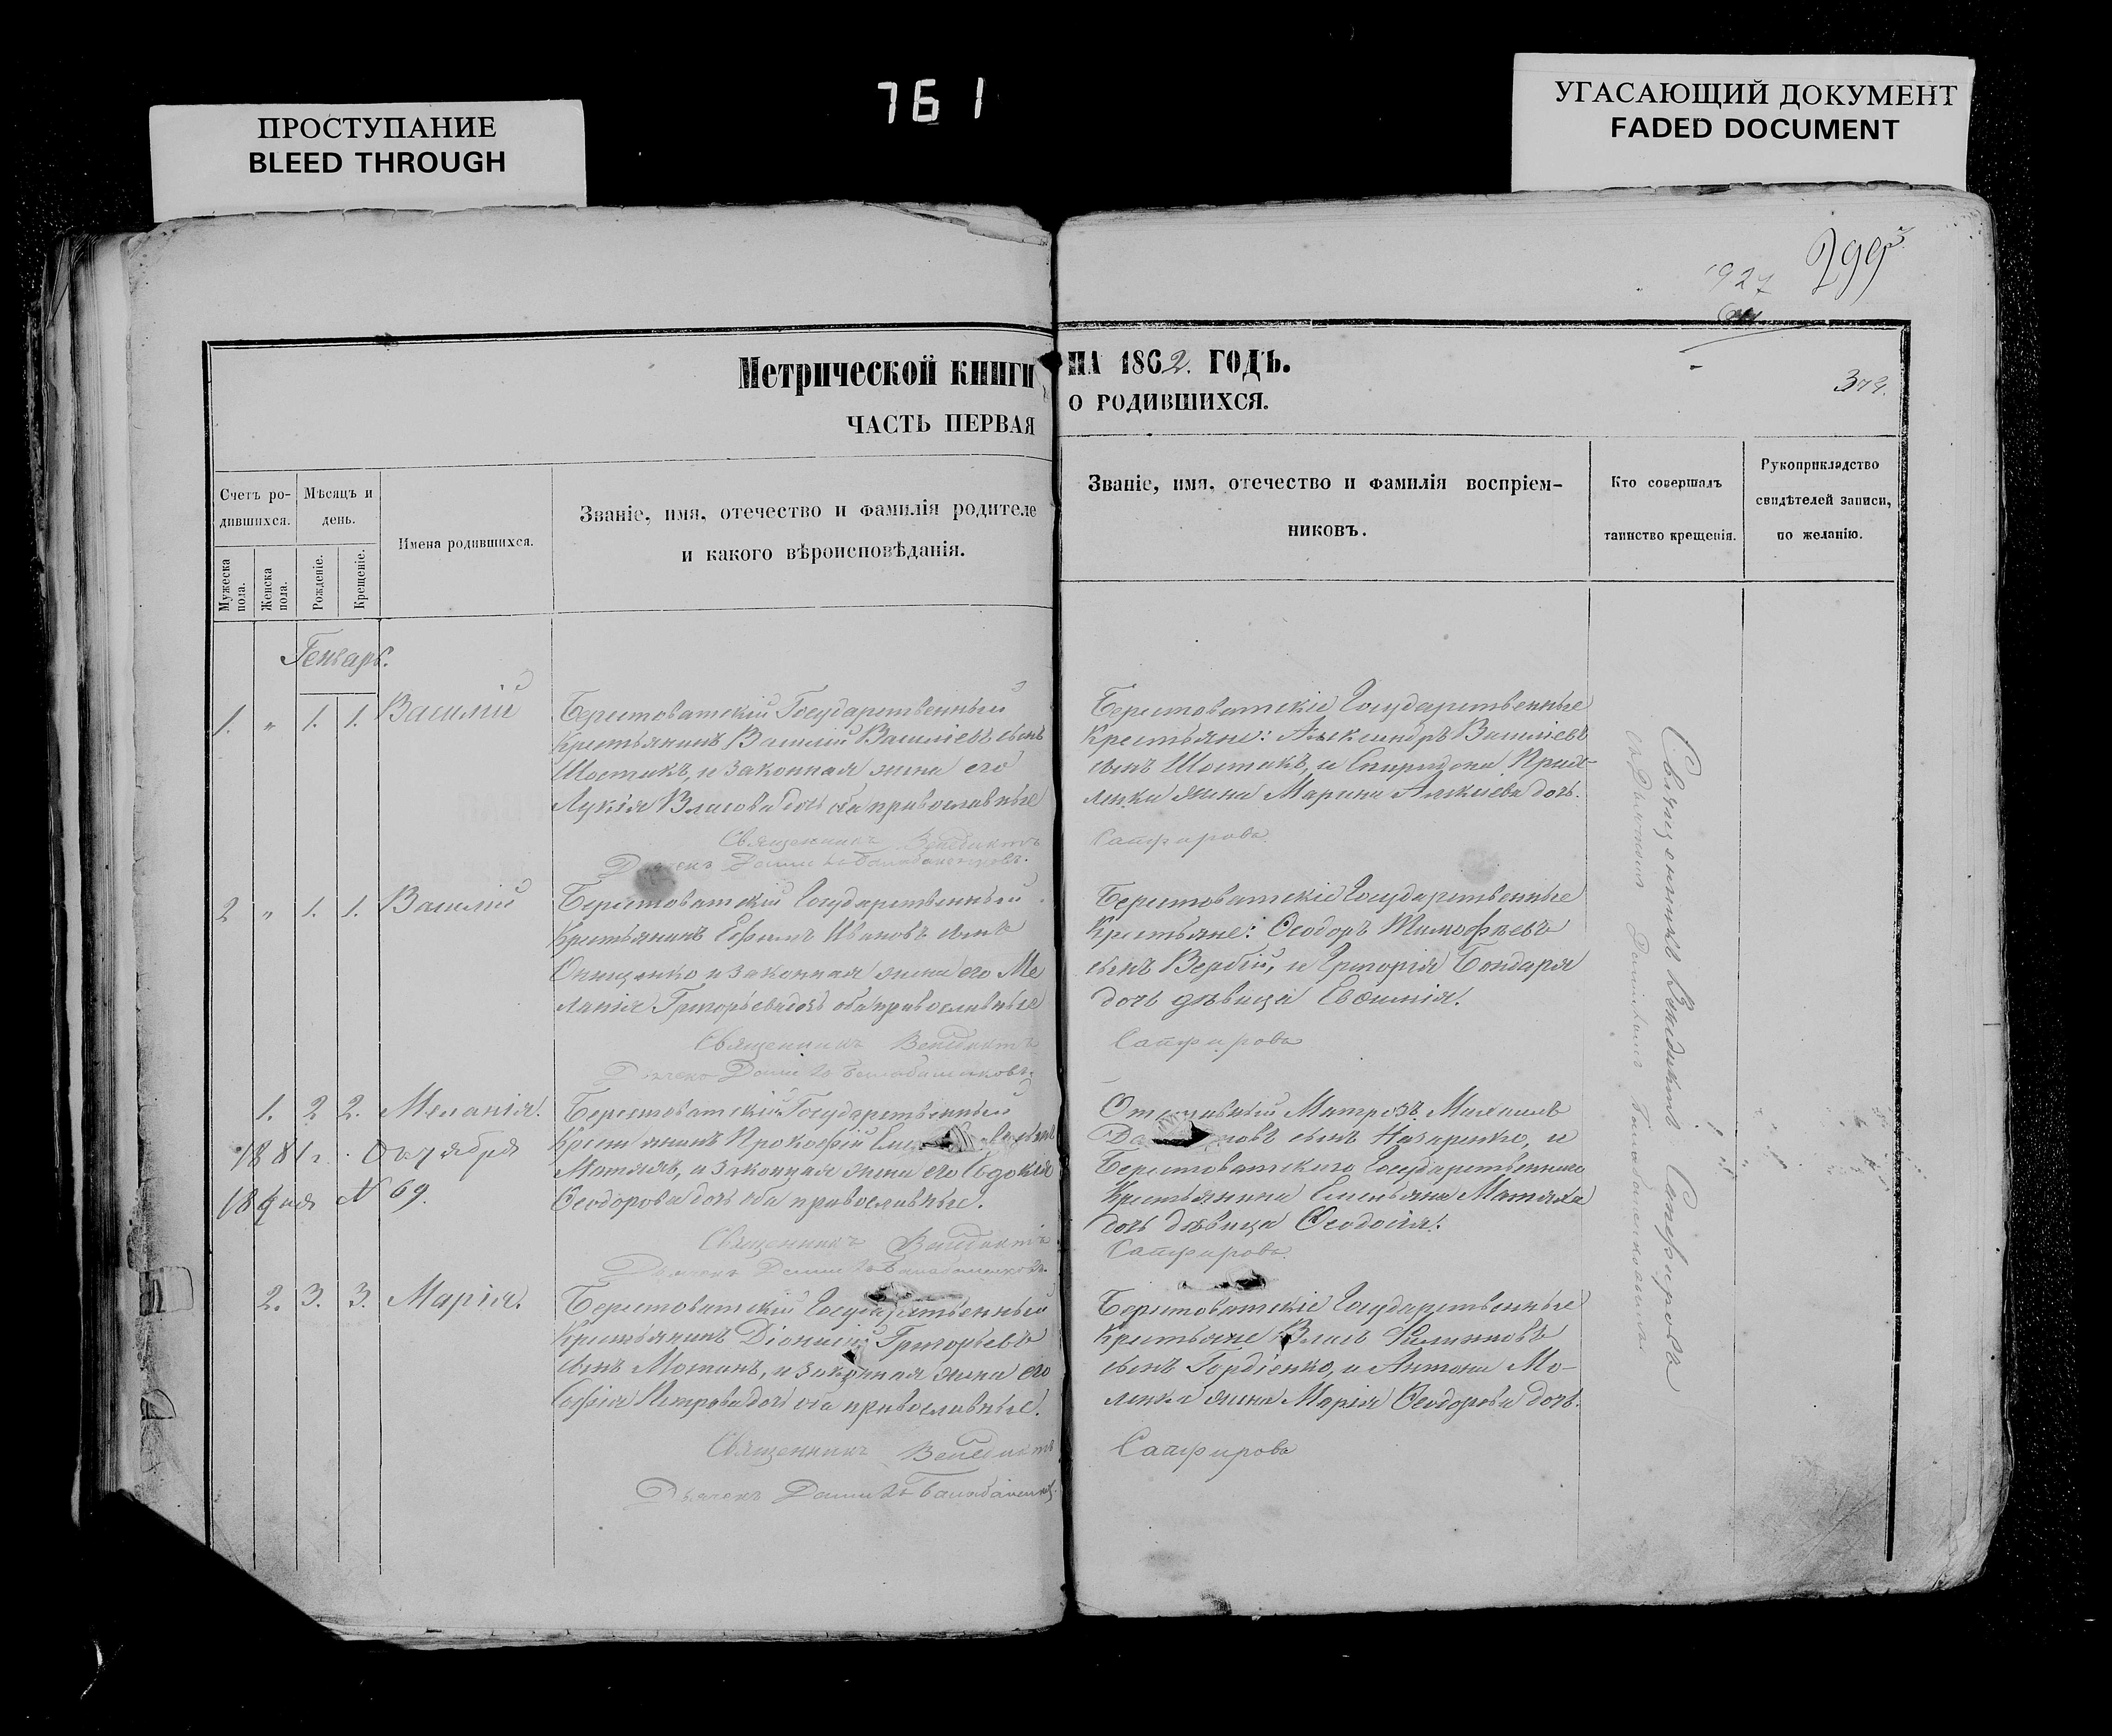 761
ПРОСТУПАНИЕ
BLEED THROUGH
УГАСАЮЩИЙ ДОКУМЕНТ
FADED DOCUMENT
299
1927
Метрической книги на 1862. годъ.
373.
ЧАСТЬ ПЕРВАЯ о родившихся.
Счетъ ро-
дившихся.
Мужеска пола.
Женска пола.
Мѣсяцъ и
день.
Рожденіе.
Крещеніе.
Имена родившихся.
Званіе, имя, отечество и фамилія родителе
и какого вѣроисповѣданія.
Званіе, имя, отечество и фамилія воспріем-
никовъ.
Кто совершалъ
таинство крещенія.
Рукоприкладство
свидѣтелей записи,
по желанію.
Генварь.
1. " 1. 1. Василій
Берестоватскій Государственный
Крестьянинъ Василій Васильевъ сынъ
Шостакъ, и законная жена его
Лукія Власова дочь оба православные
Священникъ Венедиктъ
Дьячекъ
Берестоватскіе Государственные
Крестьяне: Александръ Васильевъ
сынъ Шостакъ, и Спиридона
жена Марина дочь.
Сапфирова
2 " 1. 1. Василій
Берестоватскій Государственный
Крестьянинъ Ефимъ Ивановъ сынъ
Онищенко и законная жена его Ме
ланія Григорьева дочь оба православные
Священникъ Венедиктъ
Дьячекъ
Берестоватскіе Государственные
Крестьяне: Ѳеодоръ Тимофѣевъ
сынъ Вербій, и Григорія Бондаря
дочь дѣвица Евѳимія.
Сапфирова
1. 2 2. Меланія.
1881 г. Октября
18 дня № 69.
Берестоватскій Государственный
Крестьянинъ Прокофій сынъ
Матяхъ, и законная жена его Евдокія
Ѳеодорова дочь оба православные.
Священникъ Венедиктъ
Дьячекъ
Матрозъ Михаилъ
сынъ Назаренко, и
Берестоватскаго Государственнаго
Крестьянина Емельяна Матяха
дочь дѣвица Ѳеодосія.
Сапфирова
2. 3. 3. Марія.
Берестоватскій Государственный
Крестьянинъ Діонисій Григорьевъ
сынъ Мотанъ, и законная жена его
Софія Петрова дочь оба православные.
Священникъ Венедиктъ
Дьячекъ
Берестоватскіе Государственные
Крестьяне Власъ Филиповъ
сынъ Гордіенко, и Антона Мо-
жена Марія Ѳеодорова дочь.
Сапфирова
Священникъ Венедиктъ Сапфирова